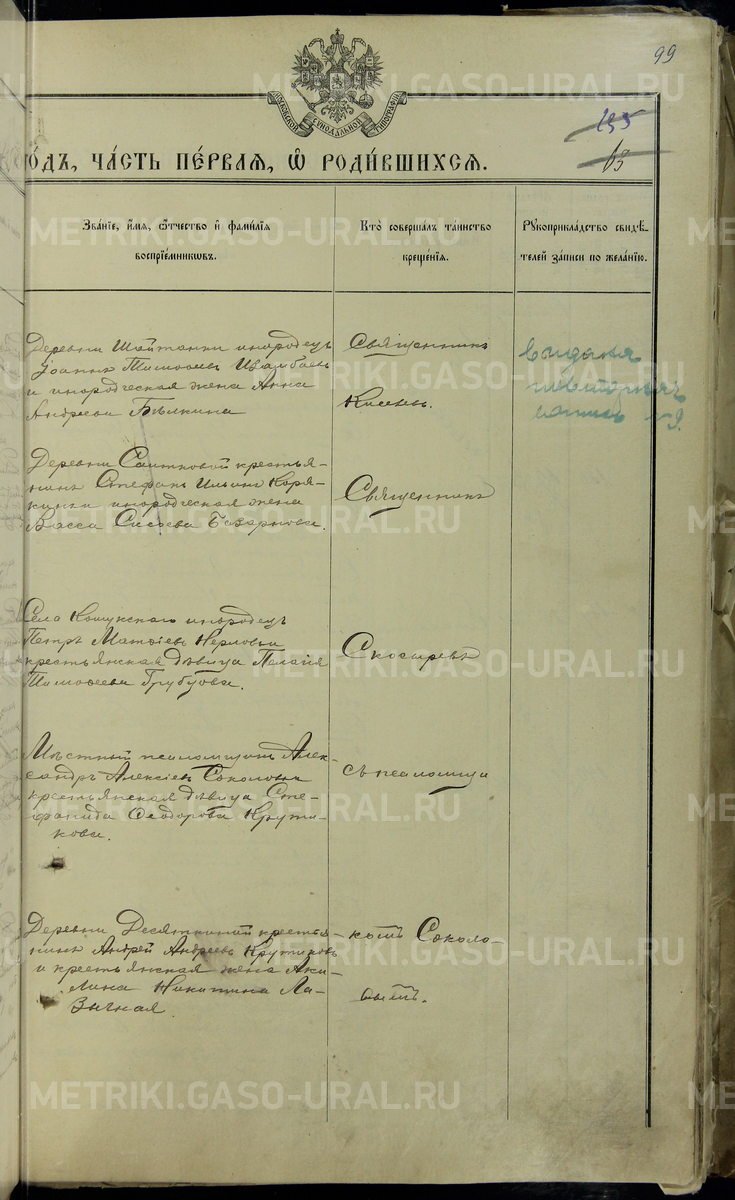 99
МОСКОВСКОЙ СѴНОДАЛЬНОЙ ТИПОГРАФІИ
195
63
годъ, ча́сть пе́рвая, ѡ҆ роди́вшихся.
Зва́нїе, и҆́мя, ѻ҆́тчество и҆ фами́лїя
воспрїе́мникѡвъ.
Кто̀ соверша́лъ та́инство
креще́нїя.
Рꙋкоприкла́дство свидѣ́-
телей за́писи по жела́нїю.
Деревни Шайтанки инородецъ
Іоаннъ Тимофеевъ
и инородческая жена Анна
Андреева Бѣлкина
Священникъ
Киселевъ.
Выдана
повторная
выпись № 9.
Деревни Саитковой крестья-
нинъ Стефанъ Ильинъ Коря-
кинъ и инородческая жена
Васса Сисоева
Священникъ
Села Кошукскаго инородецъ
Петръ Матѳіевъ Нерловъ и
крестьянская дѣвица Пелагія
Тимоѳеева Грубцова.
Скосыревъ
Мѣстный псаломщикъ Алек-
сандръ Алексіевъ Соколовъ и
крестьянская дѣвица Сте-
фанида Ѳеодорова Крути-
кова.
съ псаломщи
Деревни Десяткиной крестья-
нинъ Андрей Андреевъ Крутиковъ
и крестьянская жена Аки-
лина Никитина Ла-
зычная.
комъ Соколо-
вымъ.
METRIKI.GASO-URAL.RU